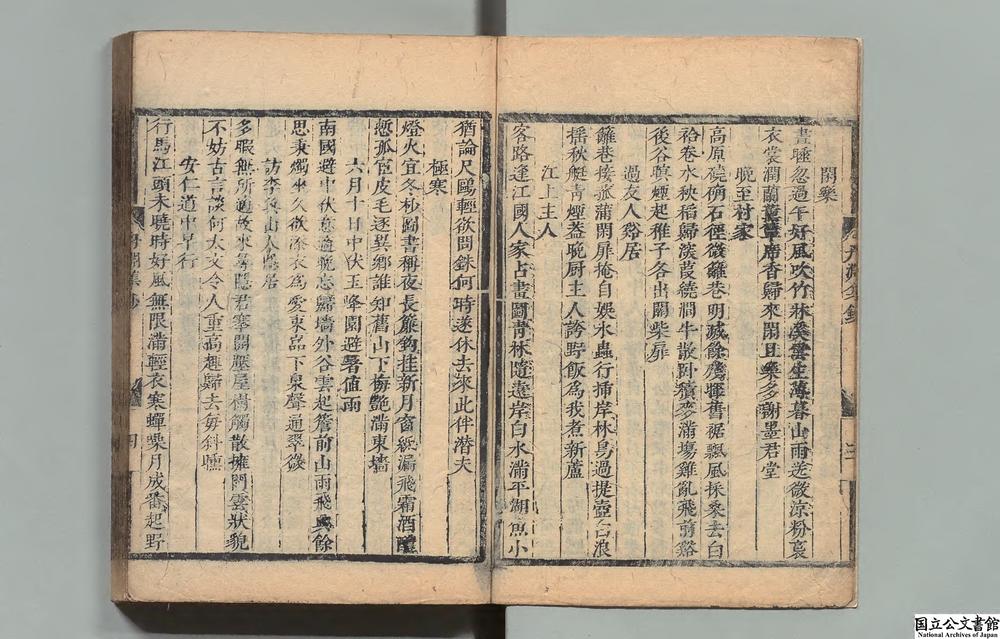 閑樂
晝睡忽過午好風吹竹牀溪雲生薄暮山雨送微涼粉裛
衣裳潤蘭薰簟席香歸來閑且樂多謝墨君堂
晚至村家
高原磽确石徑微籬巷明滅餘殘暉舊裾飄風採桑去白
袷卷水秧稻歸深葭繞澗牛散臥積麥滿場雞亂飛前谿
後谷暝煙起稚子各出關柴扉
過友人谿居
籬巷接菰蒲閑扉掩自娛水蟲行插岸林鳥過提壺白浪
搖秋艇青煙蓋晚厨主人誇野飯為我煮新蘆
江上主人
客路逢江國人家占畫圖靑林隨遠岸白水滿平湖魚小
丹淵集鈔 三
猶論尺鷗輕欲問銖何時遂休去來此伴潛夫
極寒
燈火宜冬杪圖書稱夜長簾鉤挂新月窗紙漏飛霜酒醴
慙孤宦皮毛逐異鄉誰知舊山下梅艷滿東墻
六月十日中伏玉峰園避暑值雨
南國避中伏意適晚忘歸墻外谷雲起簷前山雨飛興餘
思秉燭坐久欲添衣為愛東嵓下泉聲通翠微
訪李山人隱居
多暇無所適故來尋隱君寒開壓屋樹觸散擁門雲狀貌
不妨古言談何太文令人重高趣歸去每斜曛
安仁道中早行
行馬江頭未曉時好風無限滿輕衣寒蟬噪月成番起野
丹淵集鈔 四
国立公文書館
National Archives of Japan